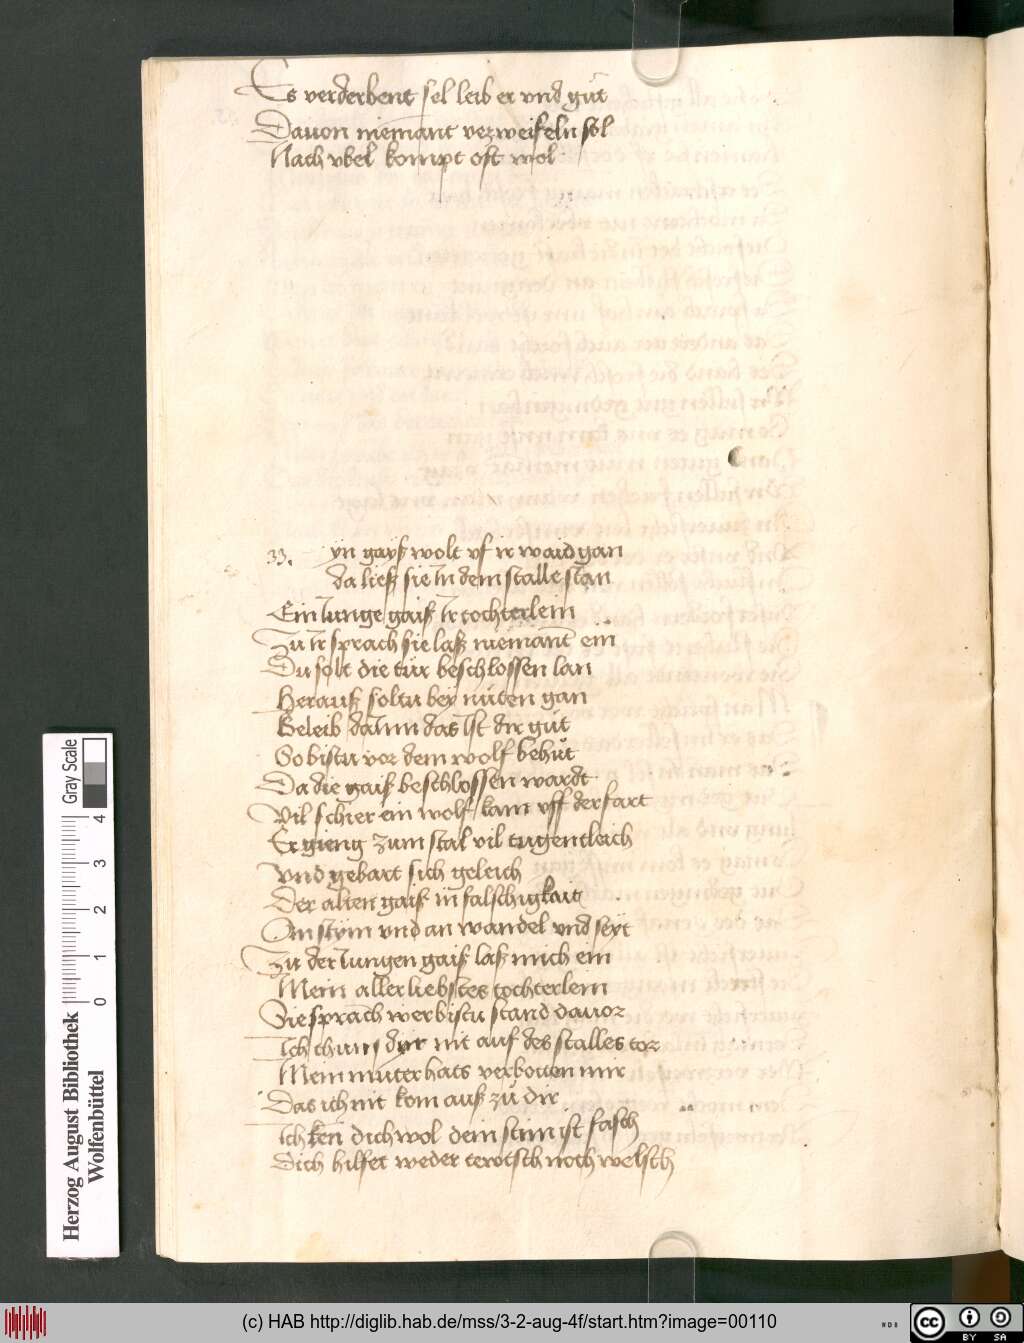 Es verderbent sel leib er vnd gut
Dauon niemant verzweifeln sol
Nach vbel kompt oft wol
33. yn gayß wolt vf ir waid gan
da ließ sie in dem stalle stan
Ein iunge gaiß ir tochterlein
Zu ir sprach sie laß niemant ein
Du solt die tür beschlossen lan
Herauß soltu bey nüten gan
Beleib darinn das ist dir gůt
So bistu vor dem wolf behůt
Da die gaiß beschlossen wardt
Vil schier ein wolf kam vff der fart
Er gieng zum stal vil tugentleich
Vnd gebart sich geleich
Der alten gaiß in falschigkait
An stym vnd an wandel vnd seyt
Zu der iungen gaiß laß mich ein
Mein aller liebstes tochterlein
Sie sprach wer bistu stand dauor
Ich thun dir nit auf des stalles tor
Mein můter hats verbotten mir
Das ich nit kom auß zů dir
Ich ken dich wol dein stim ist falsch
Dich hilfet weder tewtsch noch welsch
Herzog August Bibliothek
Wolfenbüttel
Gray Scale
0 1 2 3 4
(c) HAB http://diglib.hab.de/mss/3-2-aug-4f/start.htm?image=00110
WDB
cc BY SA